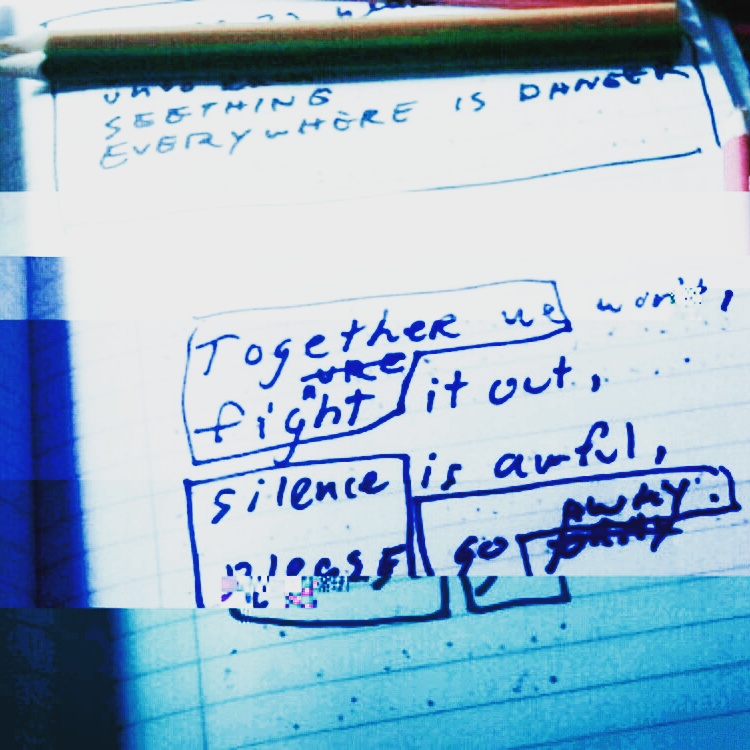 SEETHING
EVERYWHERE IS DANGER
Together we won't,
fight it out,
silence is awful,
AWAY.
PLEASE GO